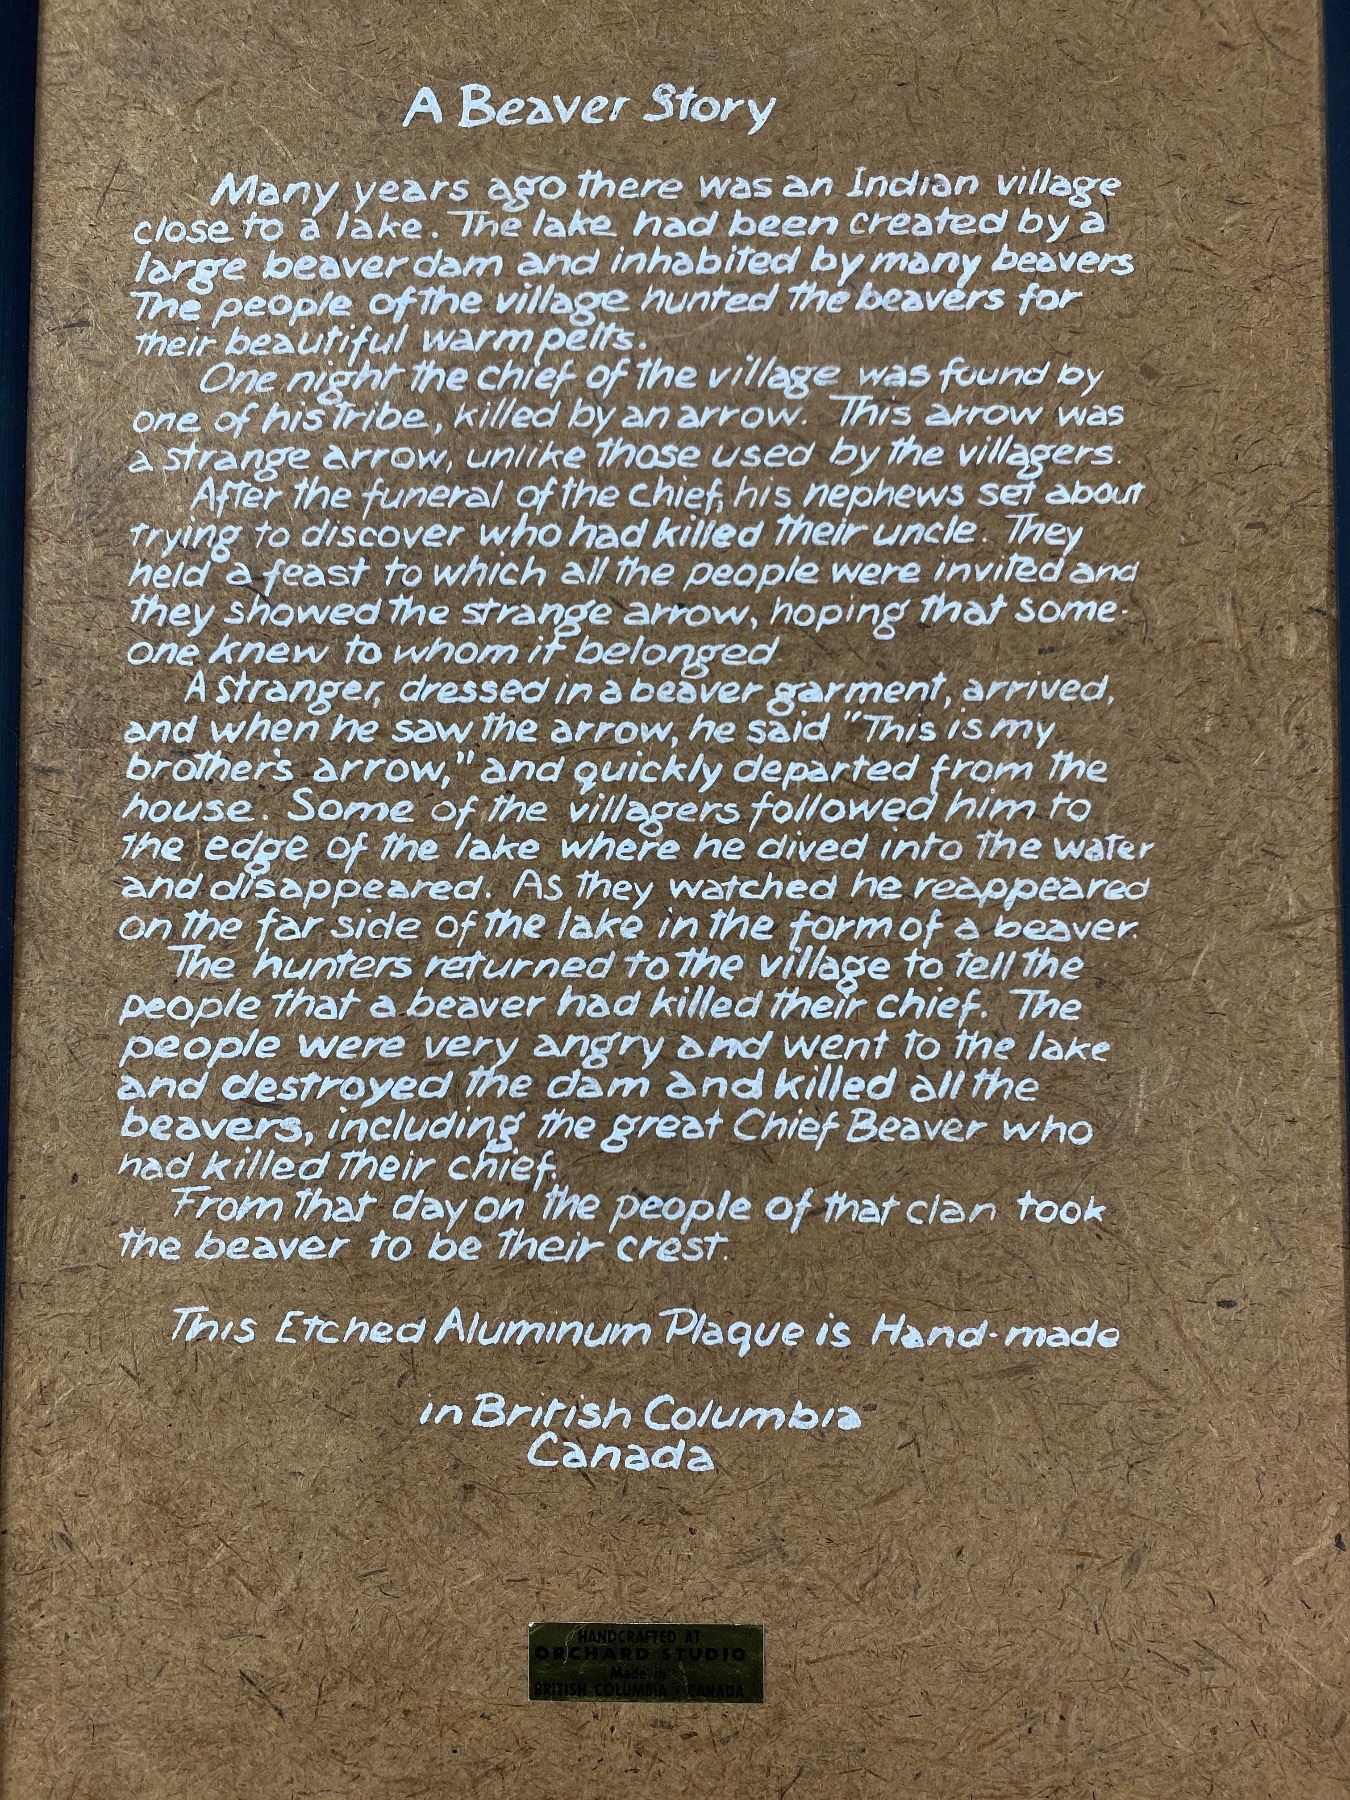 A Beaver Story
Many years ago there was an Indian village
close to a lake. The lake had been created by a
large beaver dam and inhabited by many beavers
The people of the village hunted the beavers for
their beautiful warm pelts.
One night the chief of the village was found by
one of his tribe, killed by an arrow. This arrow was
a strange arrow, unlike those used by the villagers.
After the funeral of the chief, his nephews set about
trying to discover who had killed their uncle. They
held a feast to which all the people were invited and
they showed the strange arrow, hoping that some-
one knew to whom it belonged.
A stranger, dressed in a beaver garment, arrived,
and when he saw the arrow, he said "This is my
brother's arrow," and quickly departed from the
house. Some of the villagers followed him to
the edge of the lake where he dived into the water
and disappeared. As they watched he reappeared
on the far side of the lake in the form of a beaver.
The hunters returned to the village to tell the
people that a beaver had killed their chief. The
people were very angry and went to the lake
and destroyed the dam and killed all the
beavers, including the great Chief Beaver who
had killed their chief.
From that day on the people of that clan took
the beaver to be their crest.
This Etched Aluminum Plaque is Hand-made
in British Columbia
Canada
HANDCRAFTED AT
ORCHARD STUDIO
Made in
BRITISH COLUMBIA - CANADA